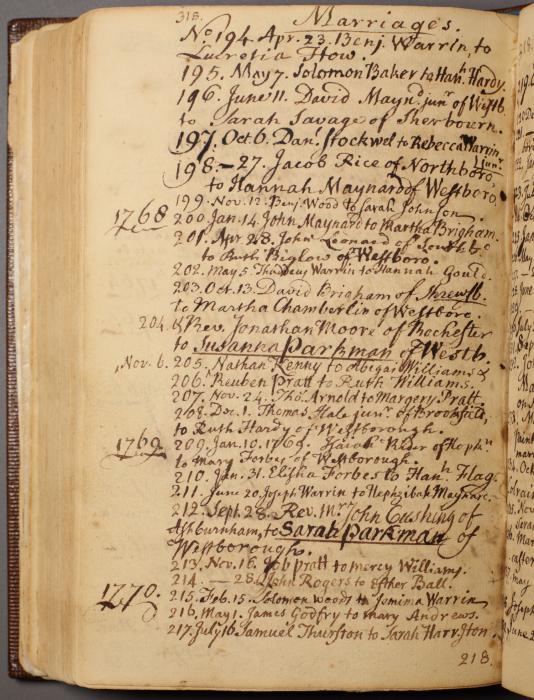 318. Marriages.
No 194. Apr. 23. Benj. Warrin, to
Lucretia How.
195. May 7. Solomon Baker to Hanh Hardy.
196. June 11. David Maynd. junr of Westb
to Sarah Savage of Sherbourn.
197. Oct. 6. Danl. Stockwel to Rebecca Warrin
junr.
198. — 27. Jacob Rice of Northboro,
to Hannah Maynard of Westboro,
199. Nov. 12. Benj. Wood to Sarah Johnson
1768 200. Jan. 14. John Maynard to Martha Brigham.
201. Apr 28. John Leonard of
to Ruth Biglow of Westboro.
202. May 5. Thaddeus Warrin to Hannah Gould.
203. Oct. 13. David Brigham of Shrewsb.
to Martha Chamberlin of Westboro.
204. & Rev. Jonathan Moore of Rochester
to Susanna Parkman of Westb.
Nov. 6. 205. Nathan Kenny to Abigail Williams &
206. Reuben Pratt to Ruth Williams.
207. Nov. 24. Tho. Arnold to Margery Pratt.
208. Dec. 1. Thomas Hale junr. of Brookfield,
to Ruth Hardy of Westborough.
1769 209. Jan. 10. 1769. Isaiah of Hopkn
to Mary Forbes of Westborough.
210. Jan. 31. Elisha Forbes to Hanh. Flag.
211. June 20. Joseph Warrin to Hephzibah Maynard.
212. Sept. 28. Rev. Mr. John Cushing of
Ashburnham, to Sarah Parkman of
Westborough.
213. Nov. 16. Job Pratt to mercy Williams.
214. — 28. John Rogers to Esther Ball.
1770. 215. Feb. 15. Solomon Woods to Jemima Warrin
216. May 1. James Godfry to mary Andrews.
217. July 16 Samuel Thurston to Sarah Harrgton.
218.